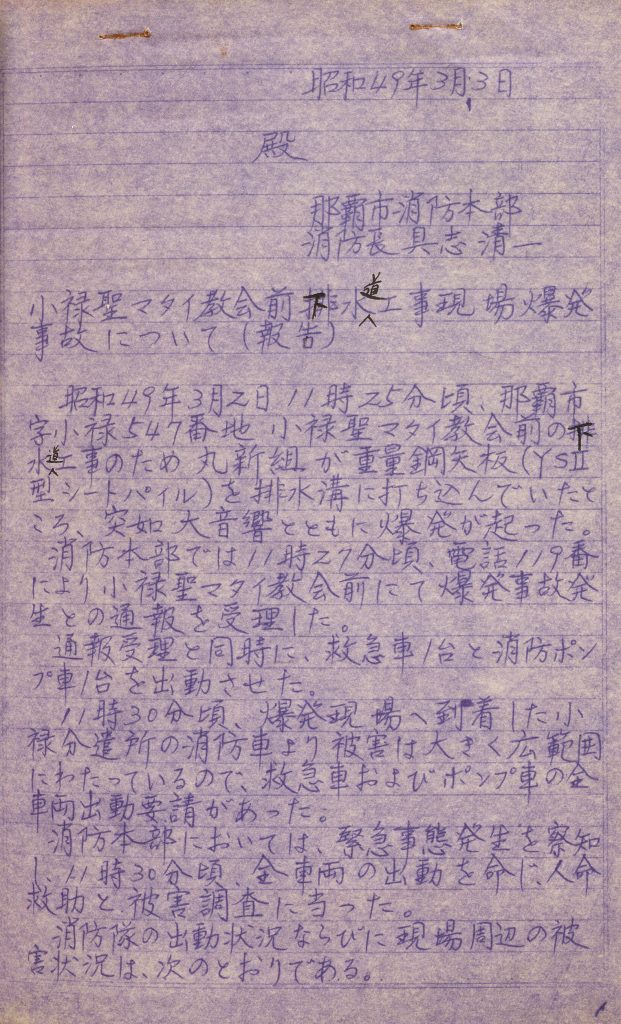 昭和49年3月3日
殿
那覇市消防本部
消防長 具志清一
小禄聖マタイ教会前下水道工事現場爆発
事故について(報告)
昭和49年3月2日11時25分頃、那覇市
字小禄547番地 小禄聖マタイ教会前の下
水道工事のため 丸新組が重量鋼矢板(YSⅡ
型シートパイル)を排水溝に打ち込んでいたと
ころ、突如大音響とともに爆発が起った。
消防本部では11時27分頃、電話119番
により小禄聖マタイ教会前にて爆発事故発
生との通報を受理した。
通報受理と同時に、救急車1台と消防ポン
プ車1台を出動させた。
11時30分頃、爆発現場へ到着した小
禄分遣所の消防車より被害は大きく広範囲
にわたっているので、救急車およびポンプ車の全
車両出動要請があった。
消防本部においては、緊急事態発生を察知
し、11時30分頃、全車両の出動を命じ、人命
救助と被害調査に当った。
消防隊の出動状況ならびに現場周辺の被
害状況は、次のとおりである。
1